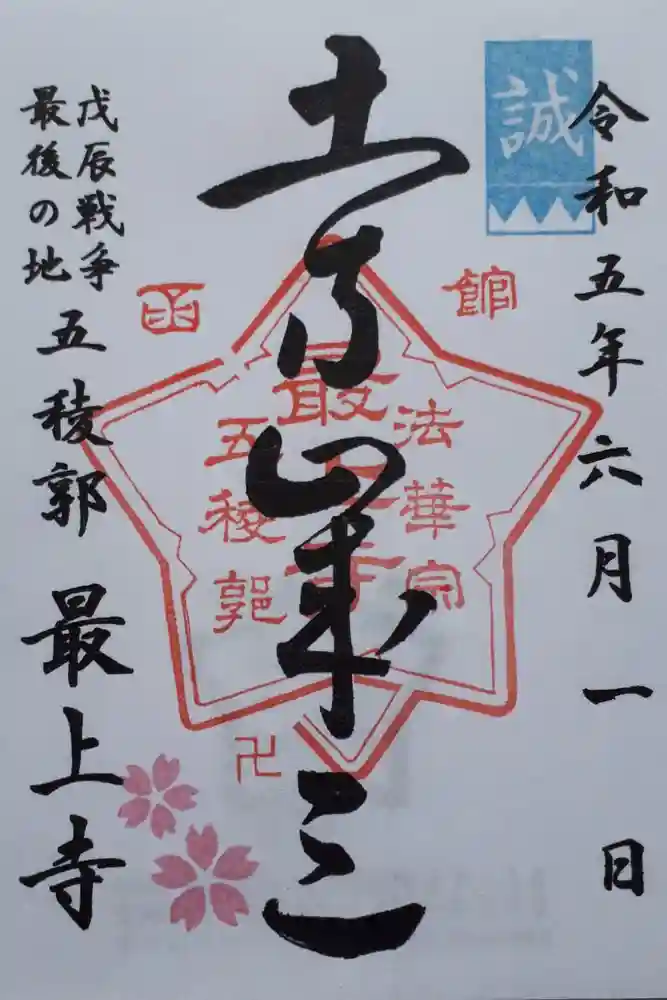 令和五年六月一日
誠
土方歳三
函館
法華宗
最上寺
五稜郭
卍
戊辰戦争
最後の地
五稜郭 最上寺